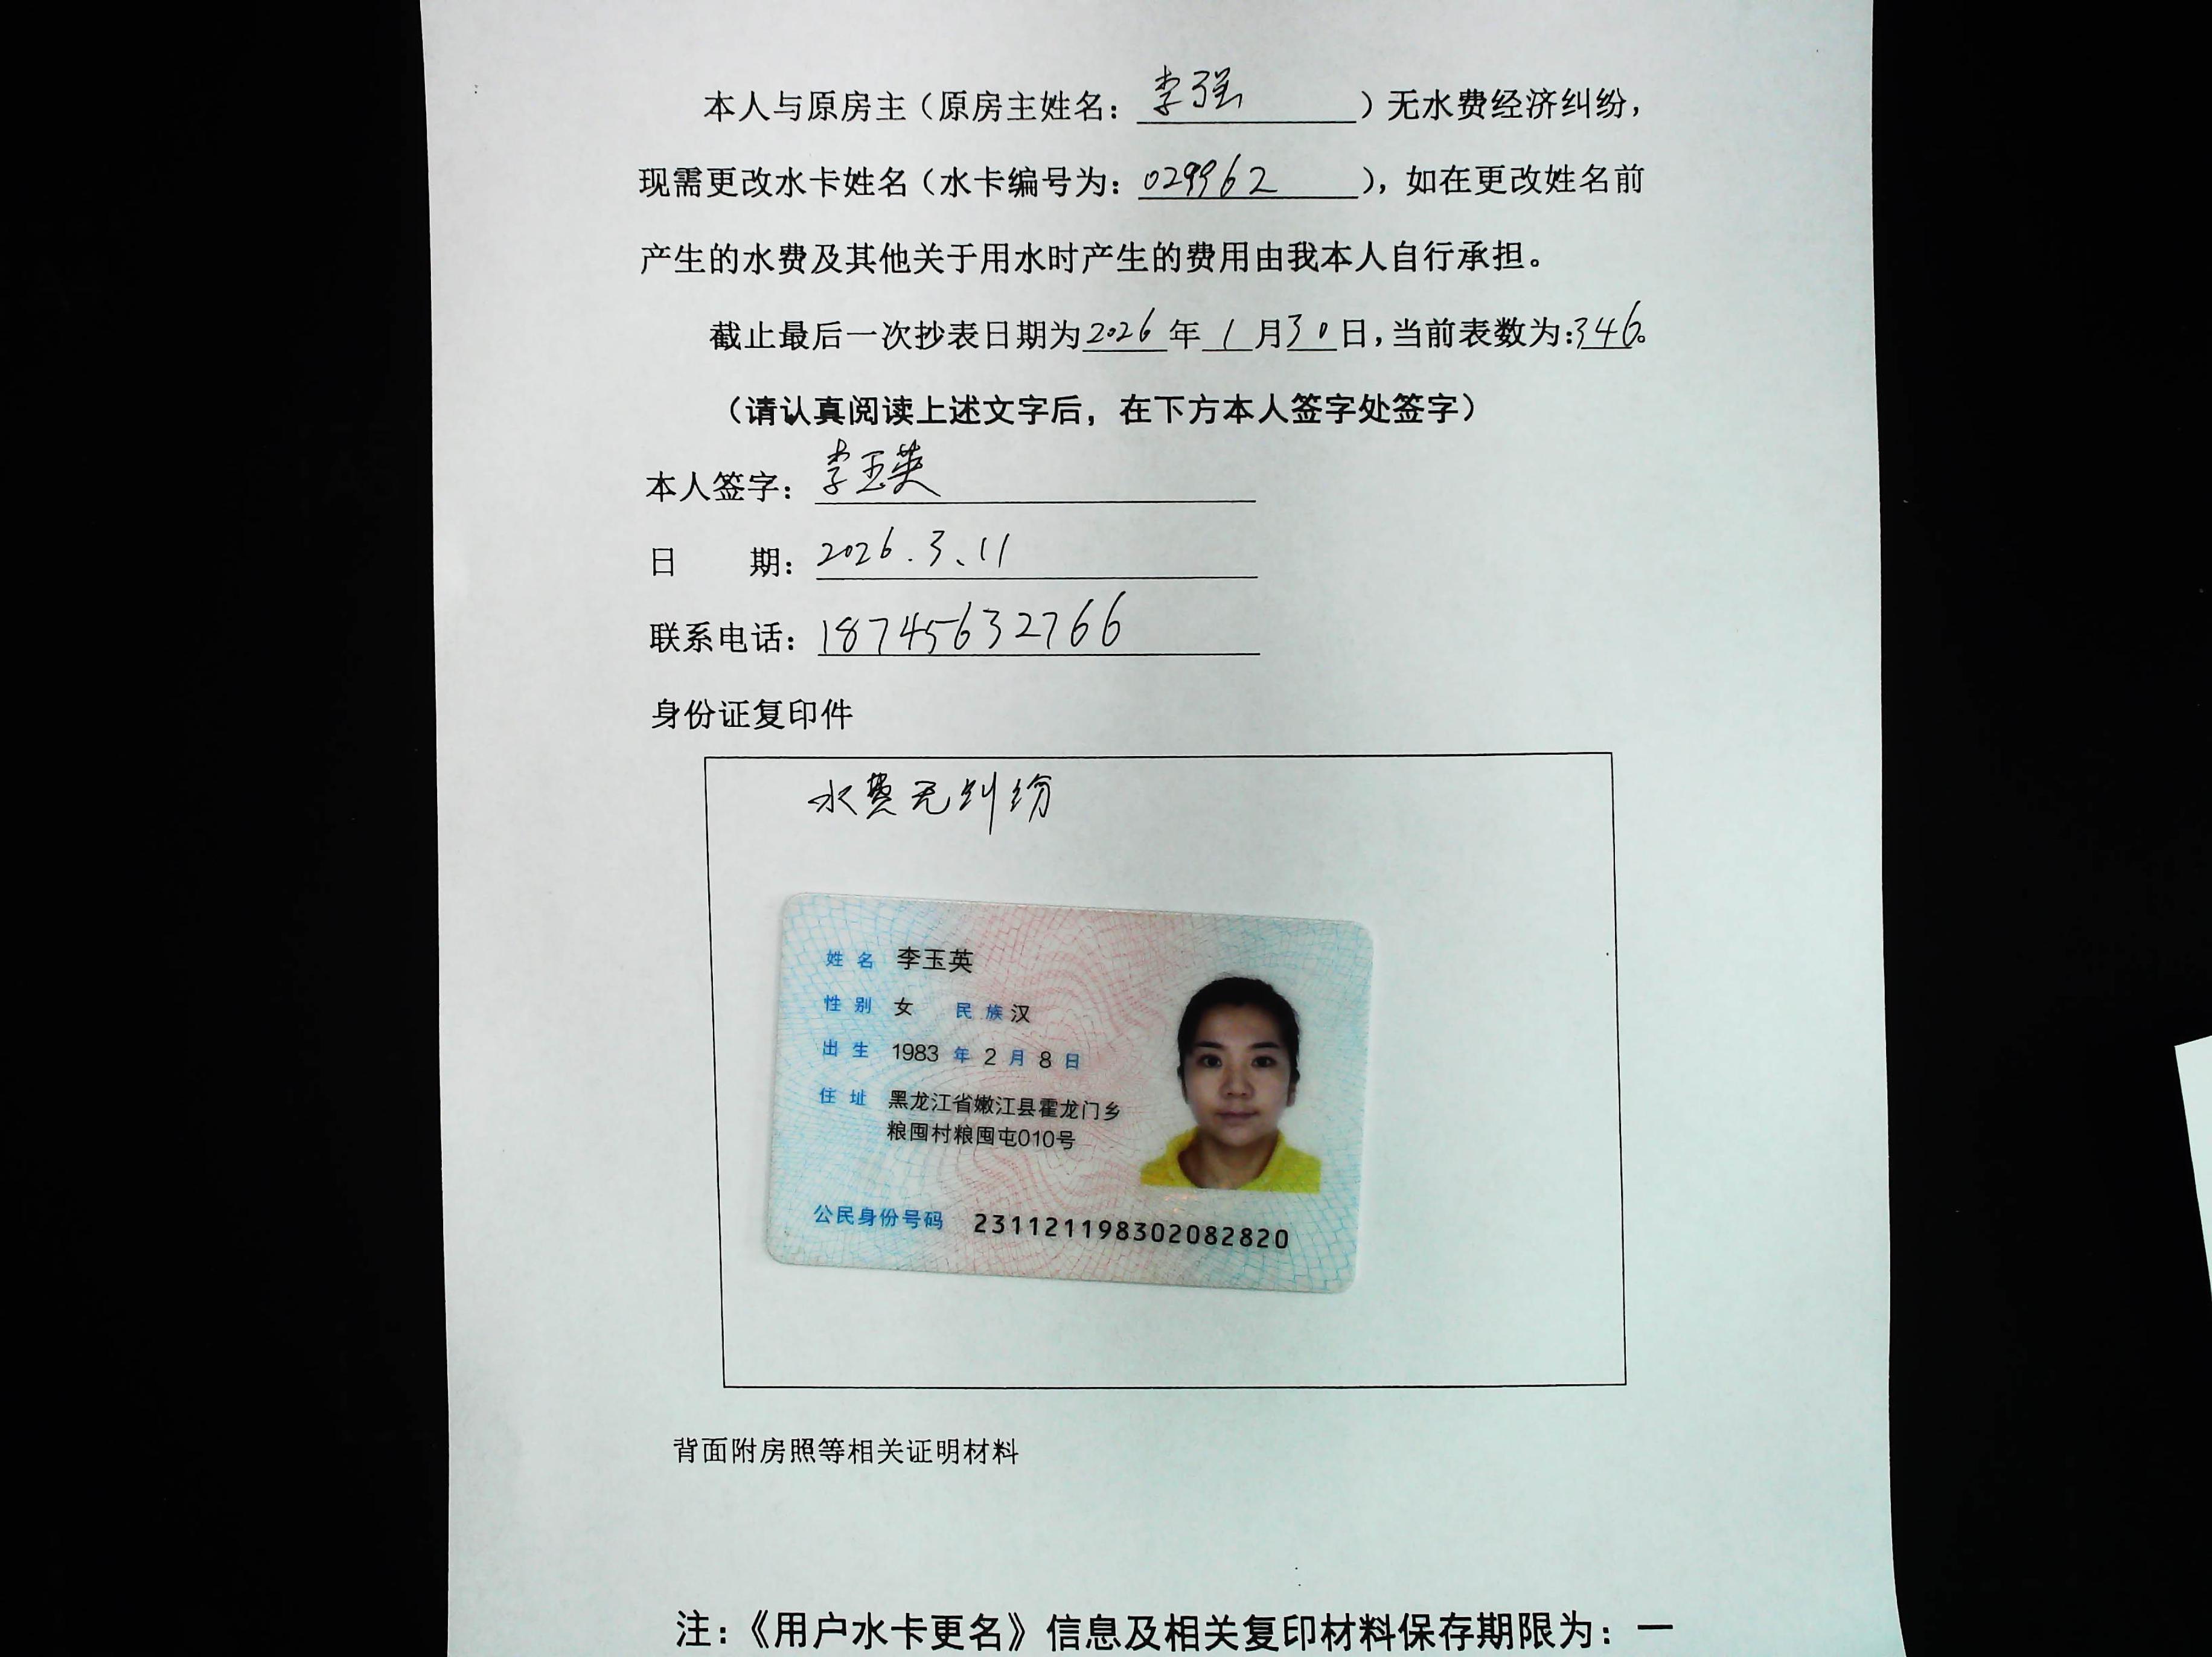 本人与原房主（原房主姓名：李强）无水费经济纠纷，
现需更改水卡姓名（水卡编号为：029962），如在更改姓名前
产生的水费及其他关于用水时产生的费用由我本人自行承担。
截止最后一次抄表日期为2026年1月30日，当前表数为：346。
（请认真阅读上述文字后，在下方本人签字处签字）
本人签字：李玉英
日 期：2026.3、11
联系电话：18745632766
身份证复印件
水费无纠纷
姓名 李玉英
性别 女 民族 汉
出生 1983 年 2 月 8 日
住址 黑龙江省嫩江县霍龙门乡
粮囤村粮囤屯010号
公民身份号码 231121198302082820
背面附房照等相关证明材料
注：《用户水卡更名》信息及相关复印材料保存期限为：一